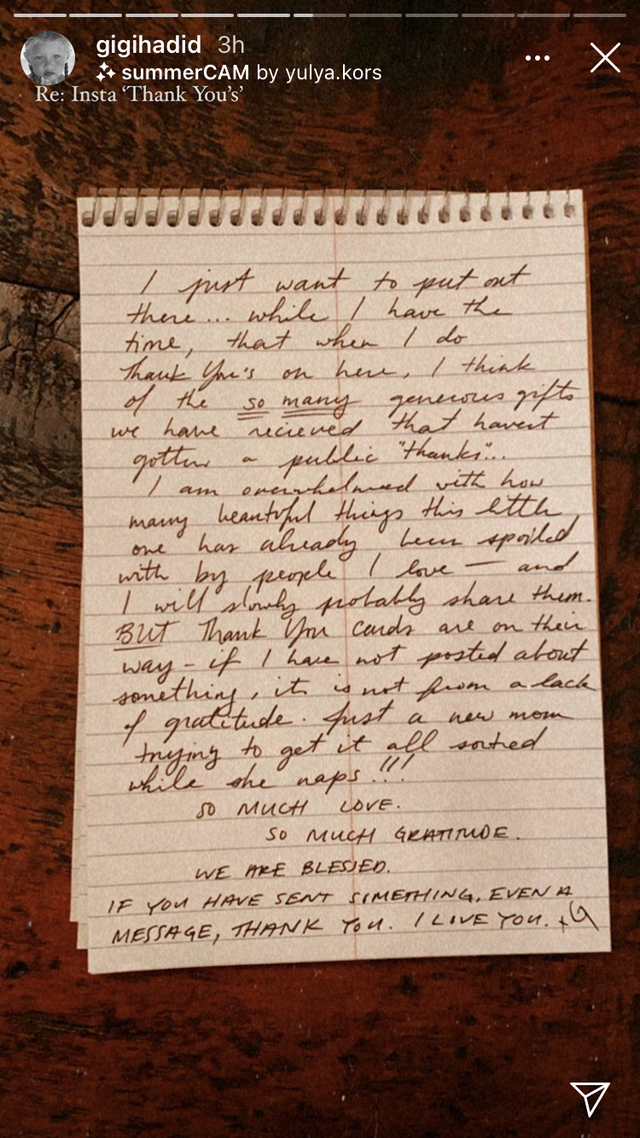 gigihadid 3h
summerCAM by yulya.kors
Re: Insta ‘Thank You’s’
I just want to put out
there... while I have the
time, that when I do
Thank You's on here, I think
of the so many generous gifts
we have recieved that havent
gotten a public "thanks"...
I am overwhelmed with how
many beautiful things this little
one has already been spoiled
with by people I love — and
I will slowly probably share them.
BUT Thank You cards are on their
way - if I have not posted about
something, it is not from a lack
of gratitude. Just a new mom
trying to get it all sorted
while she naps!!!
SO MUCH LOVE.
SO MUCH GRATITUDE.
WE ARE BLESSED.
IF YOU HAVE SENT SOMETHING, EVEN A
MESSAGE, THANK YOU. I LOVE YOU. x G